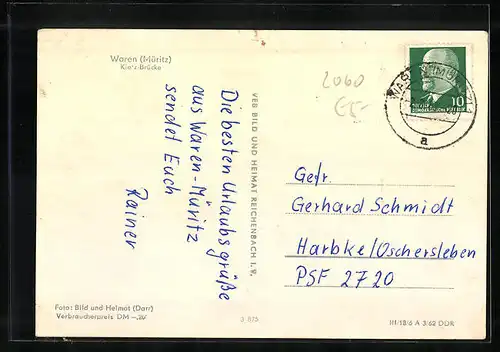 Waren (Müritz)
Kietz-Brücke
Die besten Urlaubsgrüße
aus Waren-Müritz
sendet Euch
Rainer
VEB BILD UND HEIMAT REICHENBACH I. V.
2060
10
a
Gefr.
Gerhard Schmidt
Harbke/Oschersleben
PSF 2720
Foto: Bild und Heimat (Darr)
Verbraucherpreis DM
III/18/6 A 3/62 DDR